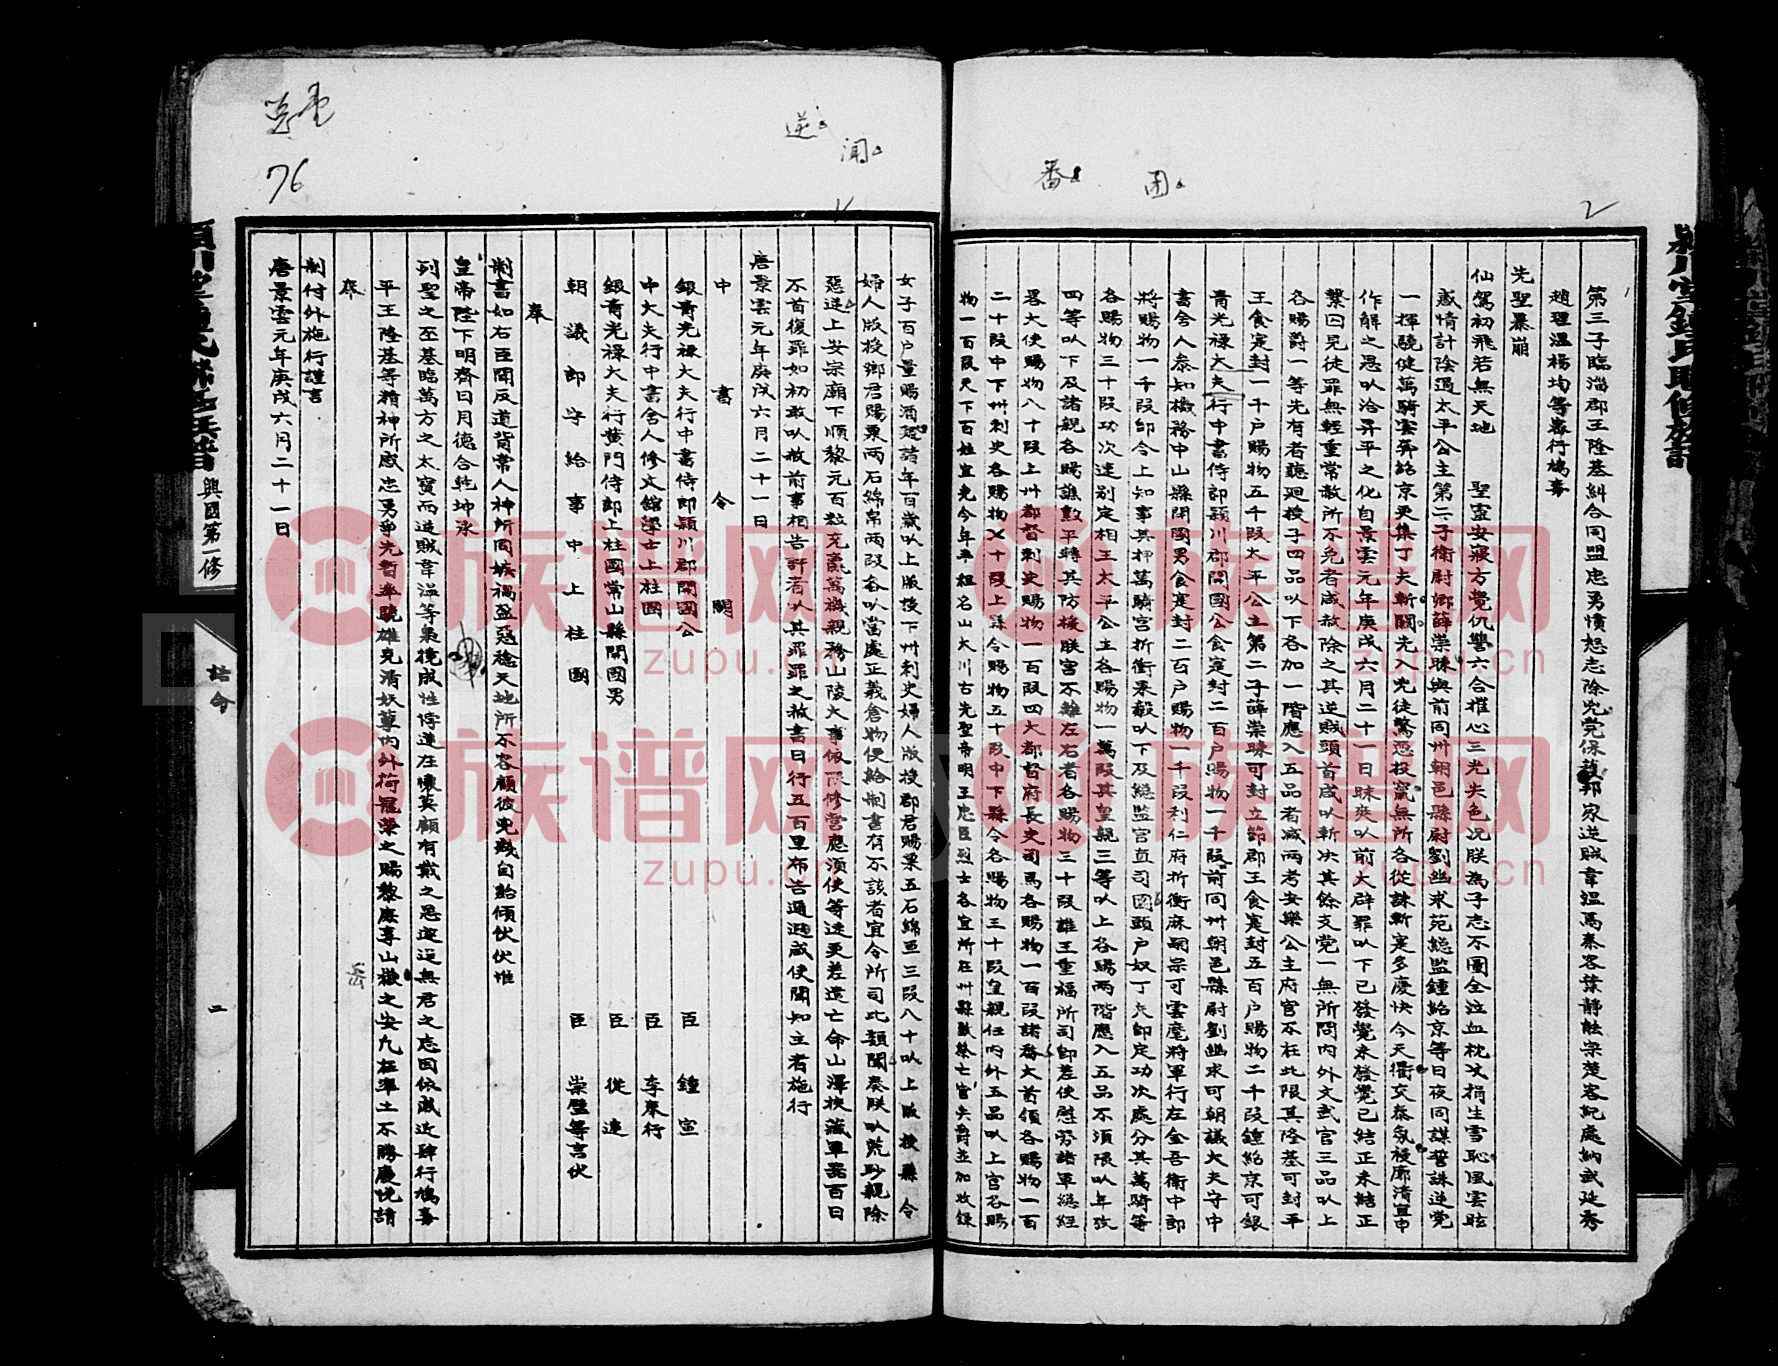 第三子臨淄郡王隆基糾合同盟忠勇憤怒志除兇党保護邦家逆賊韋溫馬秦客葉靜能宗楚客紀處納武延秀
趙履溫楊均等毒行鴆毒
先聖暴崩
仙駕初飛若無天地 聖靈安寢方覺仇讐六合摧心三光失色况朕為子志不圖全泣血枕戈捐生雪恥風雲眩
惑情計陰通太平公主第二子衛尉卿薛崇暕與前同州朝邑縣尉劉幽求苑緫監鍾紹京等日夜同謀誓誅逆党
一揮驍健萬騎雲奔紹京更集丁夫斬關先入兇徒驚惡投竄無所各從誅斬寔多慶快今天衢交泰氛祲廓清宜申
作解之恩以洽昇平之化自景雲元年庚戌六月二十一日昧爽以前大辟罪以下已發覺未發覺已結正未結正
繫囚見徒罪無輕重常赦所不免者咸赦除之其逆賊頭首咸以斬决其餘支党一無所問內外文武官三品以上
各賜爵一等先有者聽廻授子四品以下各加一階應入五品者减兩考安樂公主府官不在此限其隆基可封平
王食寔封一千戶賜物五千段太平公主第二子薛崇暕可封立節郡王食寔封五百戶賜物二千段鍾紹京可銀
青光祿大夫行中書侍郎潁川郡開國公食寔封二百戶賜物一千段前同州朝邑縣尉劉幽求可朝議大夫守中
書舍人叅知機務中山縣開國男食寔封二百戶賜物一千段利仁府折衝麻嗣宗可雲麾將軍行左金吾衛中郎
將賜物一千段卽令上知事其押萬騎官折衝果毅以下及緫監官直司園頭戶奴丁夫卽定功次處分其萬騎等
各賜物三十段功次速别定相王太平公主各賜物一萬段其皇親三等以上各賜兩階應入五品不須限以年攷
四等以下及諸親各賜勳平轉其防援朕宮不離左右者各賜物三十段譙王重福所司卽差使慰勞諸軍緫經
畧大使賜物八十段上州都督刺史賜物一百段四大都督府長史司馬各賜物一百段諸番大首領各賜物一百
二十段中下州刺史各賜物七十段上縣令賜物五十段中下縣令各賜物三十段皇親任內外五品以上官各賜
物一百段天下百姓宜免今年半租名山大川古先聖帝明王忠臣烈士各宜所在州縣致祭亡官失爵並加收錄
女子百戶量賜酒麪諸年百歲以上版授下州刺史婦人版授郡君賜粟五石綿亘三段八十以上版授縣令
婦人版授鄉君賜粟兩石綿帛兩段各以當處正義倉物便給制書有不該者宜令所司此類聞奏朕以荒眇親除
惡逆上安宗廟下順黎元百粒充蠹萬機親務山陵大事依限修營應須使等速更差遣亡命山澤挾藏軍器百日
不首復罪如初敢以赦前事相告訐者以其罪罪之赦書日行五百里布告遐邇咸使聞知主者施行
唐景雲元年庚戌六月二十一日
中書令闕
銀青光祿大夫行中書侍郎潁川郡開國公 臣鍾宣
中大夫行中書舍人修文館學士上柱國 臣李奉行
銀青光祿大夫行黃門侍郎上柱國常山縣開國男 臣從遠
朝議郎守給事中上柱國 臣崇璧等言伏
奉
制書如右臣聞反道背常人神所同嫉禍盈惡稔天地所不容顧彼兇戮自貽傾伏伏惟
皇帝陛下明齊日月德合乾坤承
列聖之丕基臨萬方之大寳而逆賊韋溫等梟獍成性悖逆在懷莫顧有戴之恩遊逞無君之志因依戚近肆行鴆毒
平王隆基等精神所感忠勇爭先暫率驍雄克清妖孽內外荷寵榮之賜黎庶享山嶽之安凡在率土不勝慶悅請
奉
制付外施行謹言
唐景雲元年庚戌六月二十一日
興國第一修
誥命
二
76
逆
聞
番
团
岳
2
族谱网
zupu.cn
族谱网
zupu.cn
族谱网
zupu.cn
族谱网
zupu.cn